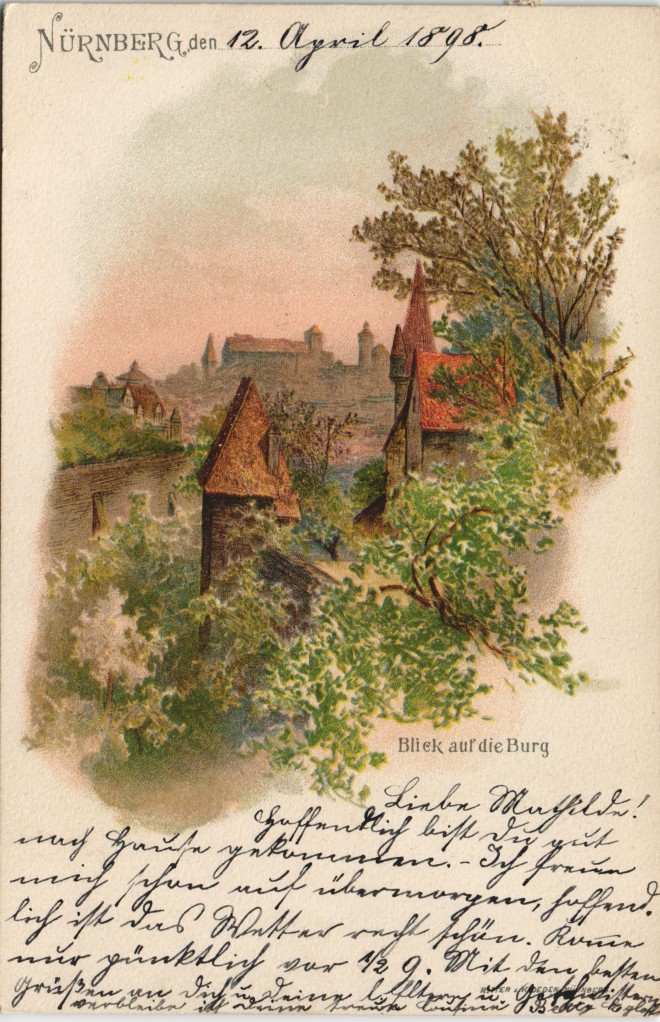 NÜRNBERG, den 12. April 1898.
Blick auf die Burg
Liebe Mathilde!
Hoffendlich bist Du gut
nach Hause gekommen. - Ich freue
mich schon auf übermorgen, hoffend-
lich ist das Wetter recht schön. Kom̅e
nur pünktlich vor ½ 9. Mit den besten
Grüßen an Dich u. Deine l. Eltern u. Geschwistern
verbleibe ich Deine treue Cousine